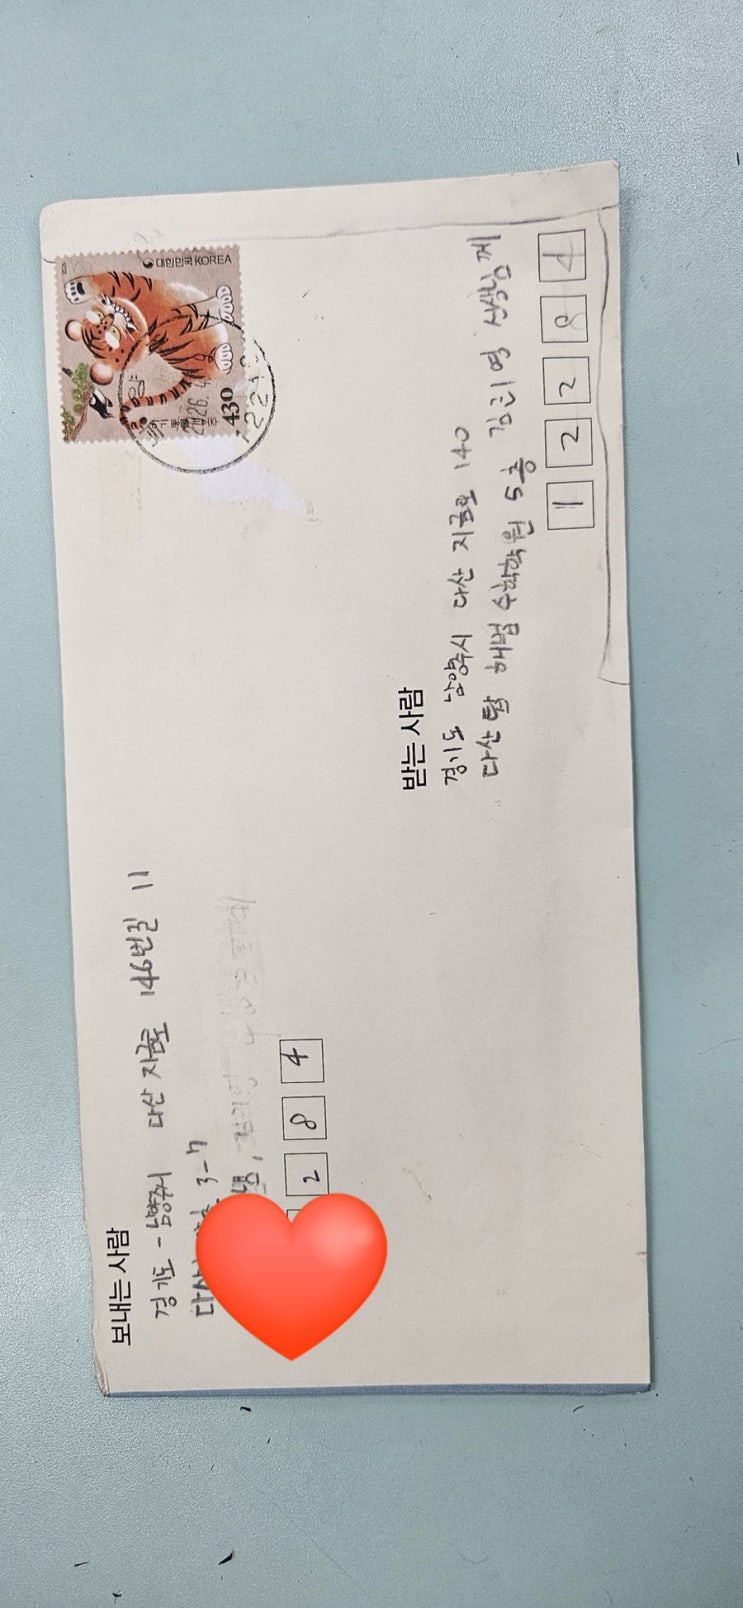 보내는 사람
경기도 - 남양주시 다산 지금로 146번길 11
3-7
2 8 4
대한민국 KOREA
430
2026. 4
받는 사람
경기도 남양주시 다산 지금로 140
다산 탑 해법 수학학원 5층 김희영 선생님께
1 2 2 8 4